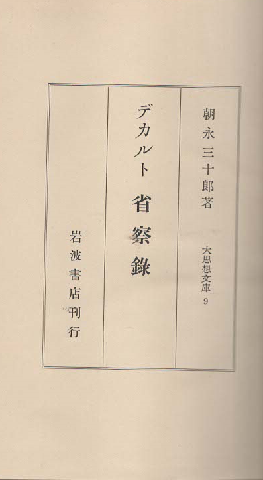 朝永三十郎著
大思想文庫 9
デカルト 省察錄
岩波書店刊行